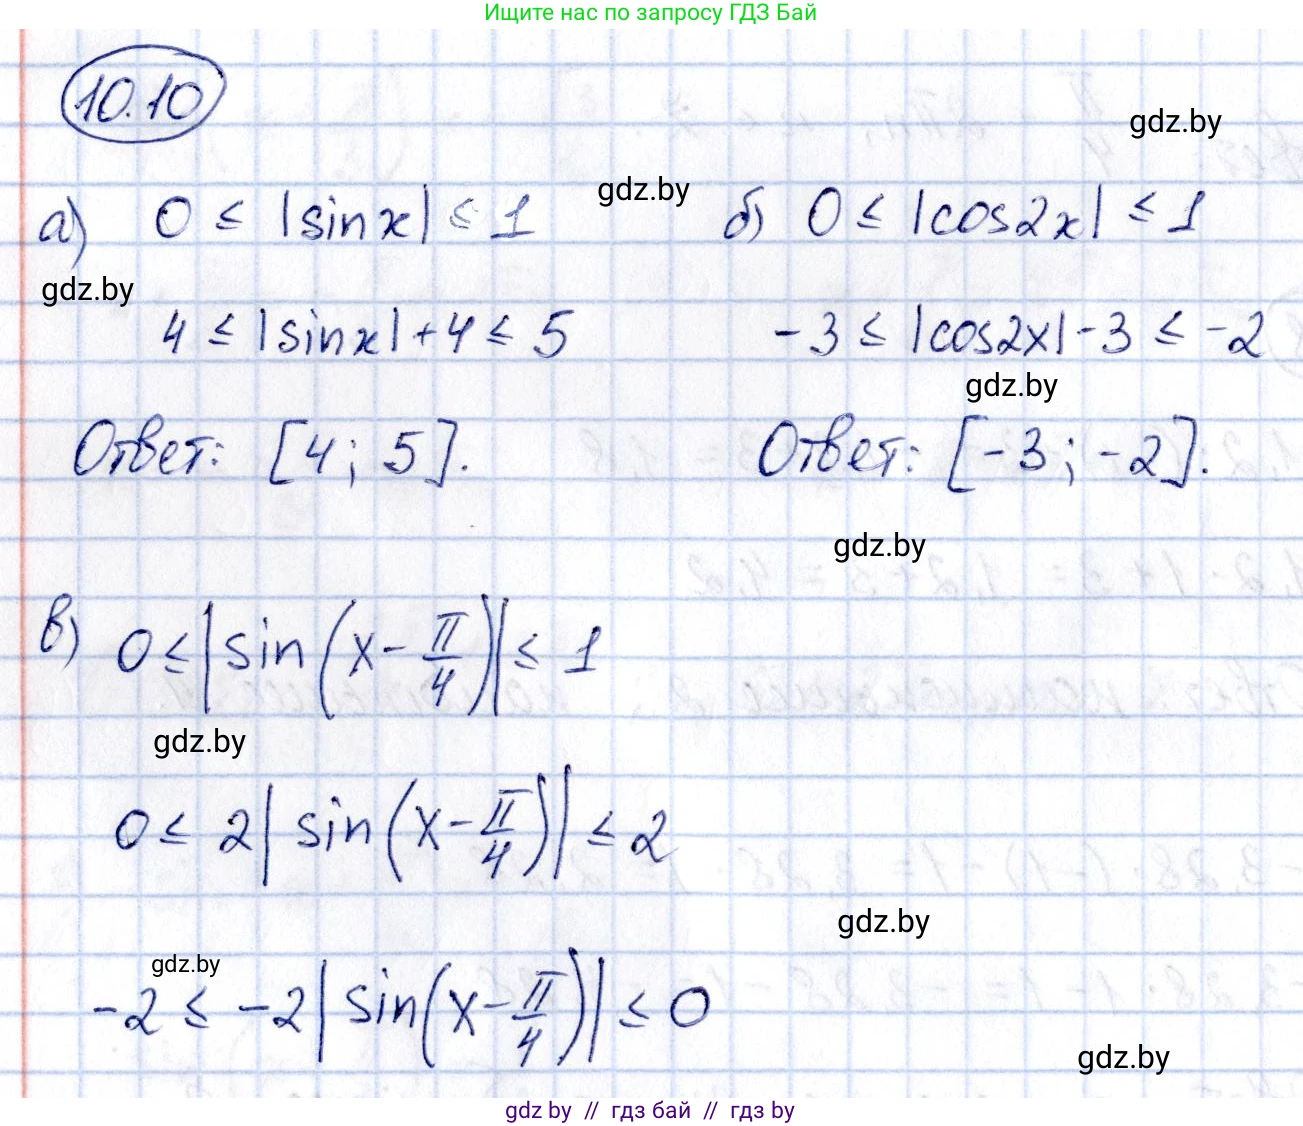 Ищите нас по запросу ГДЗ Бай
10.10
gdz.by
а) 0 ≤ |sinx| ≤ 1
gdz.by
б) 0 ≤ |cos2x| ≤ 1
gdz.by
4 ≤ |sinx| + 4 ≤ 5
-3 ≤ |cos2x| - 3 ≤ -2
gdz.by
Ответ: [4; 5].
Ответ: [-3; -2].
gdz.by
в) 0 ≤ |sin(x - π/4)| ≤ 1
gdz.by
0 ≤ 2|sin(x - π/4)| ≤ 2
gdz.by
gdz.by
-2 ≤ -2|sin(x - π/4)| ≤ 0
gdz.by
gdz by // гдз бай // гдз by